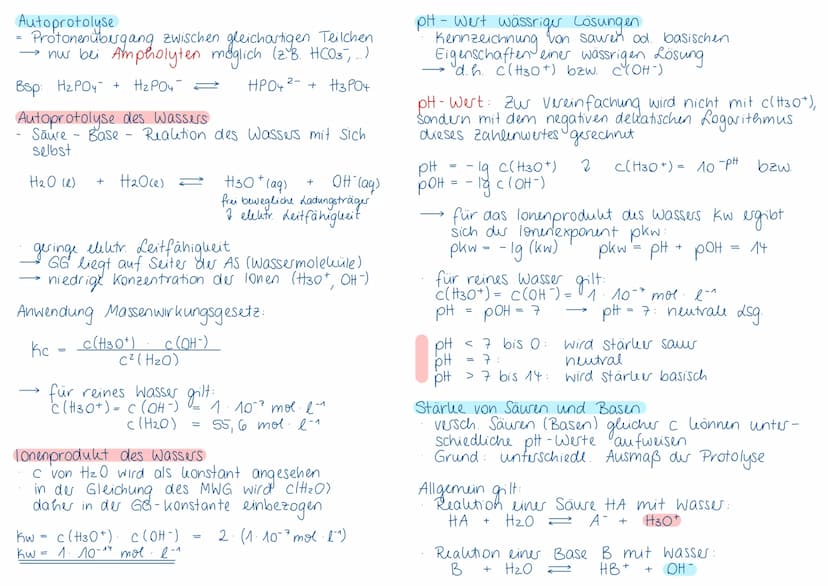 Autoprotolyse
= Protonenübergang zwischen gleichartigen Teilchen
→ nur bei Ampholyten möglich (z.B. HCO₃⁻, ...)
Bsp: H₂PO₄⁻ + H₂PO₄⁻ ⇌ HPO₄²⁻ + H₃PO₄
Autoprotolyse des Wassers
- Säure - Base - Reaktion des Wassers mit sich
selbst
H₂O (l) + H₂O (l) ⇌ H₃O⁺ (aq) + OH⁻ (aq)
frei bewegliche Ladungsträger
↓ elektr. Leitfähigkeit
· geringe elektr. Leitfähigkeit
→ GG liegt auf Seiten der AS (Wassermoleküle)
→ niedrige Konzentration der Ionen (H₃O⁺, OH⁻)
Anwendung Massenwirkungsgesetz:
Kc = c(H₃O⁺) · c(OH⁻) / c²(H₂O)
→ für reines Wasser gilt:
c(H₃O⁺) = c(OH⁻) = 1 · 10⁻⁷ mol · l⁻¹
c(H₂O) = 55,6 mol · l⁻¹
Ionenprodukt des Wassers
· c von H₂O wird als konstant angesehen
· in der Gleichung des MWG wird c(H₂O)
daher in der GG-Konstante einbezogen
Kw = c(H₃O⁺) · c(OH⁻) = 2 · (1 · 10⁻⁷ mol · l⁻¹)
Kw = 1 · 10⁻¹⁴ mol · l⁻¹
pH - Wert wässriger Lösungen
· Kennzeichnung von sauren od. basischen
Eigenschaften einer wässrigen Lösung
→ d.h. c(H₃O⁺) bzw. c(OH⁻)
pH-Wert: Zur Vereinfachung wird nicht mit c(H₃O⁺),
sondern mit dem negativen dekatischen Logarithmus
dieses Zahlenwertes gerechnet
pH = - lg c(H₃O⁺) c(H₃O⁺) = 10⁻ᵖᴴ bzw.
pOH = - lg c(OH⁻)
→ für das Ionenprodukt des Wassers Kw ergibt
sich der Ionenexponent pKw:
pKw = - lg (Kw) pKw = pH + pOH = 14
· für reines Wasser gilt:
c(H₃O⁺) = c(OH⁻) = 1 · 10⁻⁷ mol · l⁻¹
pH = pOH = 7 → pH = 7: neutrale Lsg.
pH < 7 bis 0: wird stärker sauer
pH = 7: neutral
pH > 7 bis 14: wird stärker basisch
Stärke von Säuren und Basen
· versch. Säuren (Basen) gleicher c können unter-
schiedliche pH-Werte aufweisen
· Grund: unterschiedl. Ausmaß der Protolyse
Allgemein gilt:
· Reaktion einer Säure HA mit Wasser:
HA + H₂O ⇌ A⁻ + H₃O⁺
· Reaktion einer Base B mit Wasser:
B + H₂O ⇌ HB⁺ + OH⁻